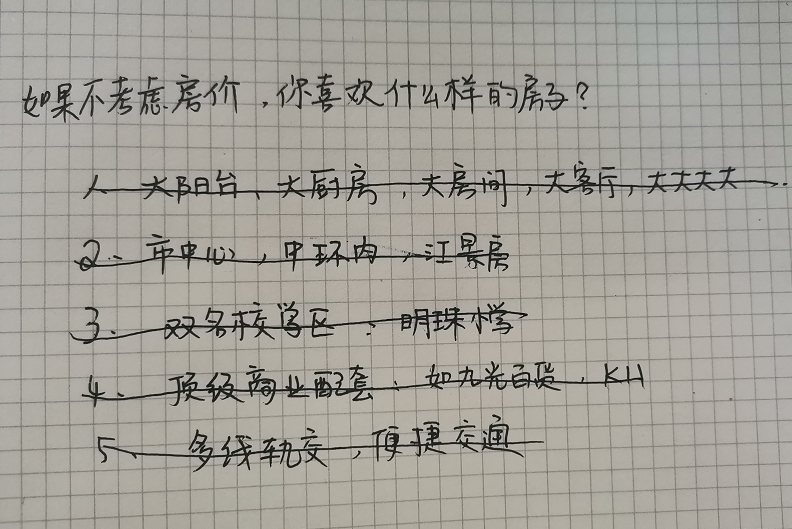 如果不考虑房价，你喜欢什么样的房子？
1、大阳台、大厨房，大房间，大客厅，大大大大……
2、市中心，中环内，江景房
3、双名校学区：明珠小学
4、顶级商业配套、如九光百货、K11
5、多线轨交，便捷交通